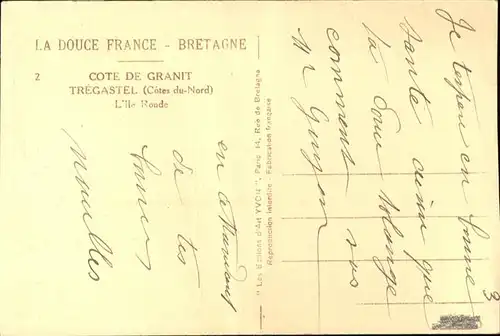 LA DOUCE FRANCE - BRETAGNE
2
COTE DE GRANIT
TRÉGASTEL (Côtes-du-Nord)
L'Ile Ronde
" Les Editions d'Art YVON ", Paris 14, Rue de Bretagne
Reproduction interdite - Fabrication française
Je t'espère en bonne
santé ainsi que
ta sœur Solange
comment vas
Mr Guyen
en attendant
de tes
bonnes
nouvelles
3